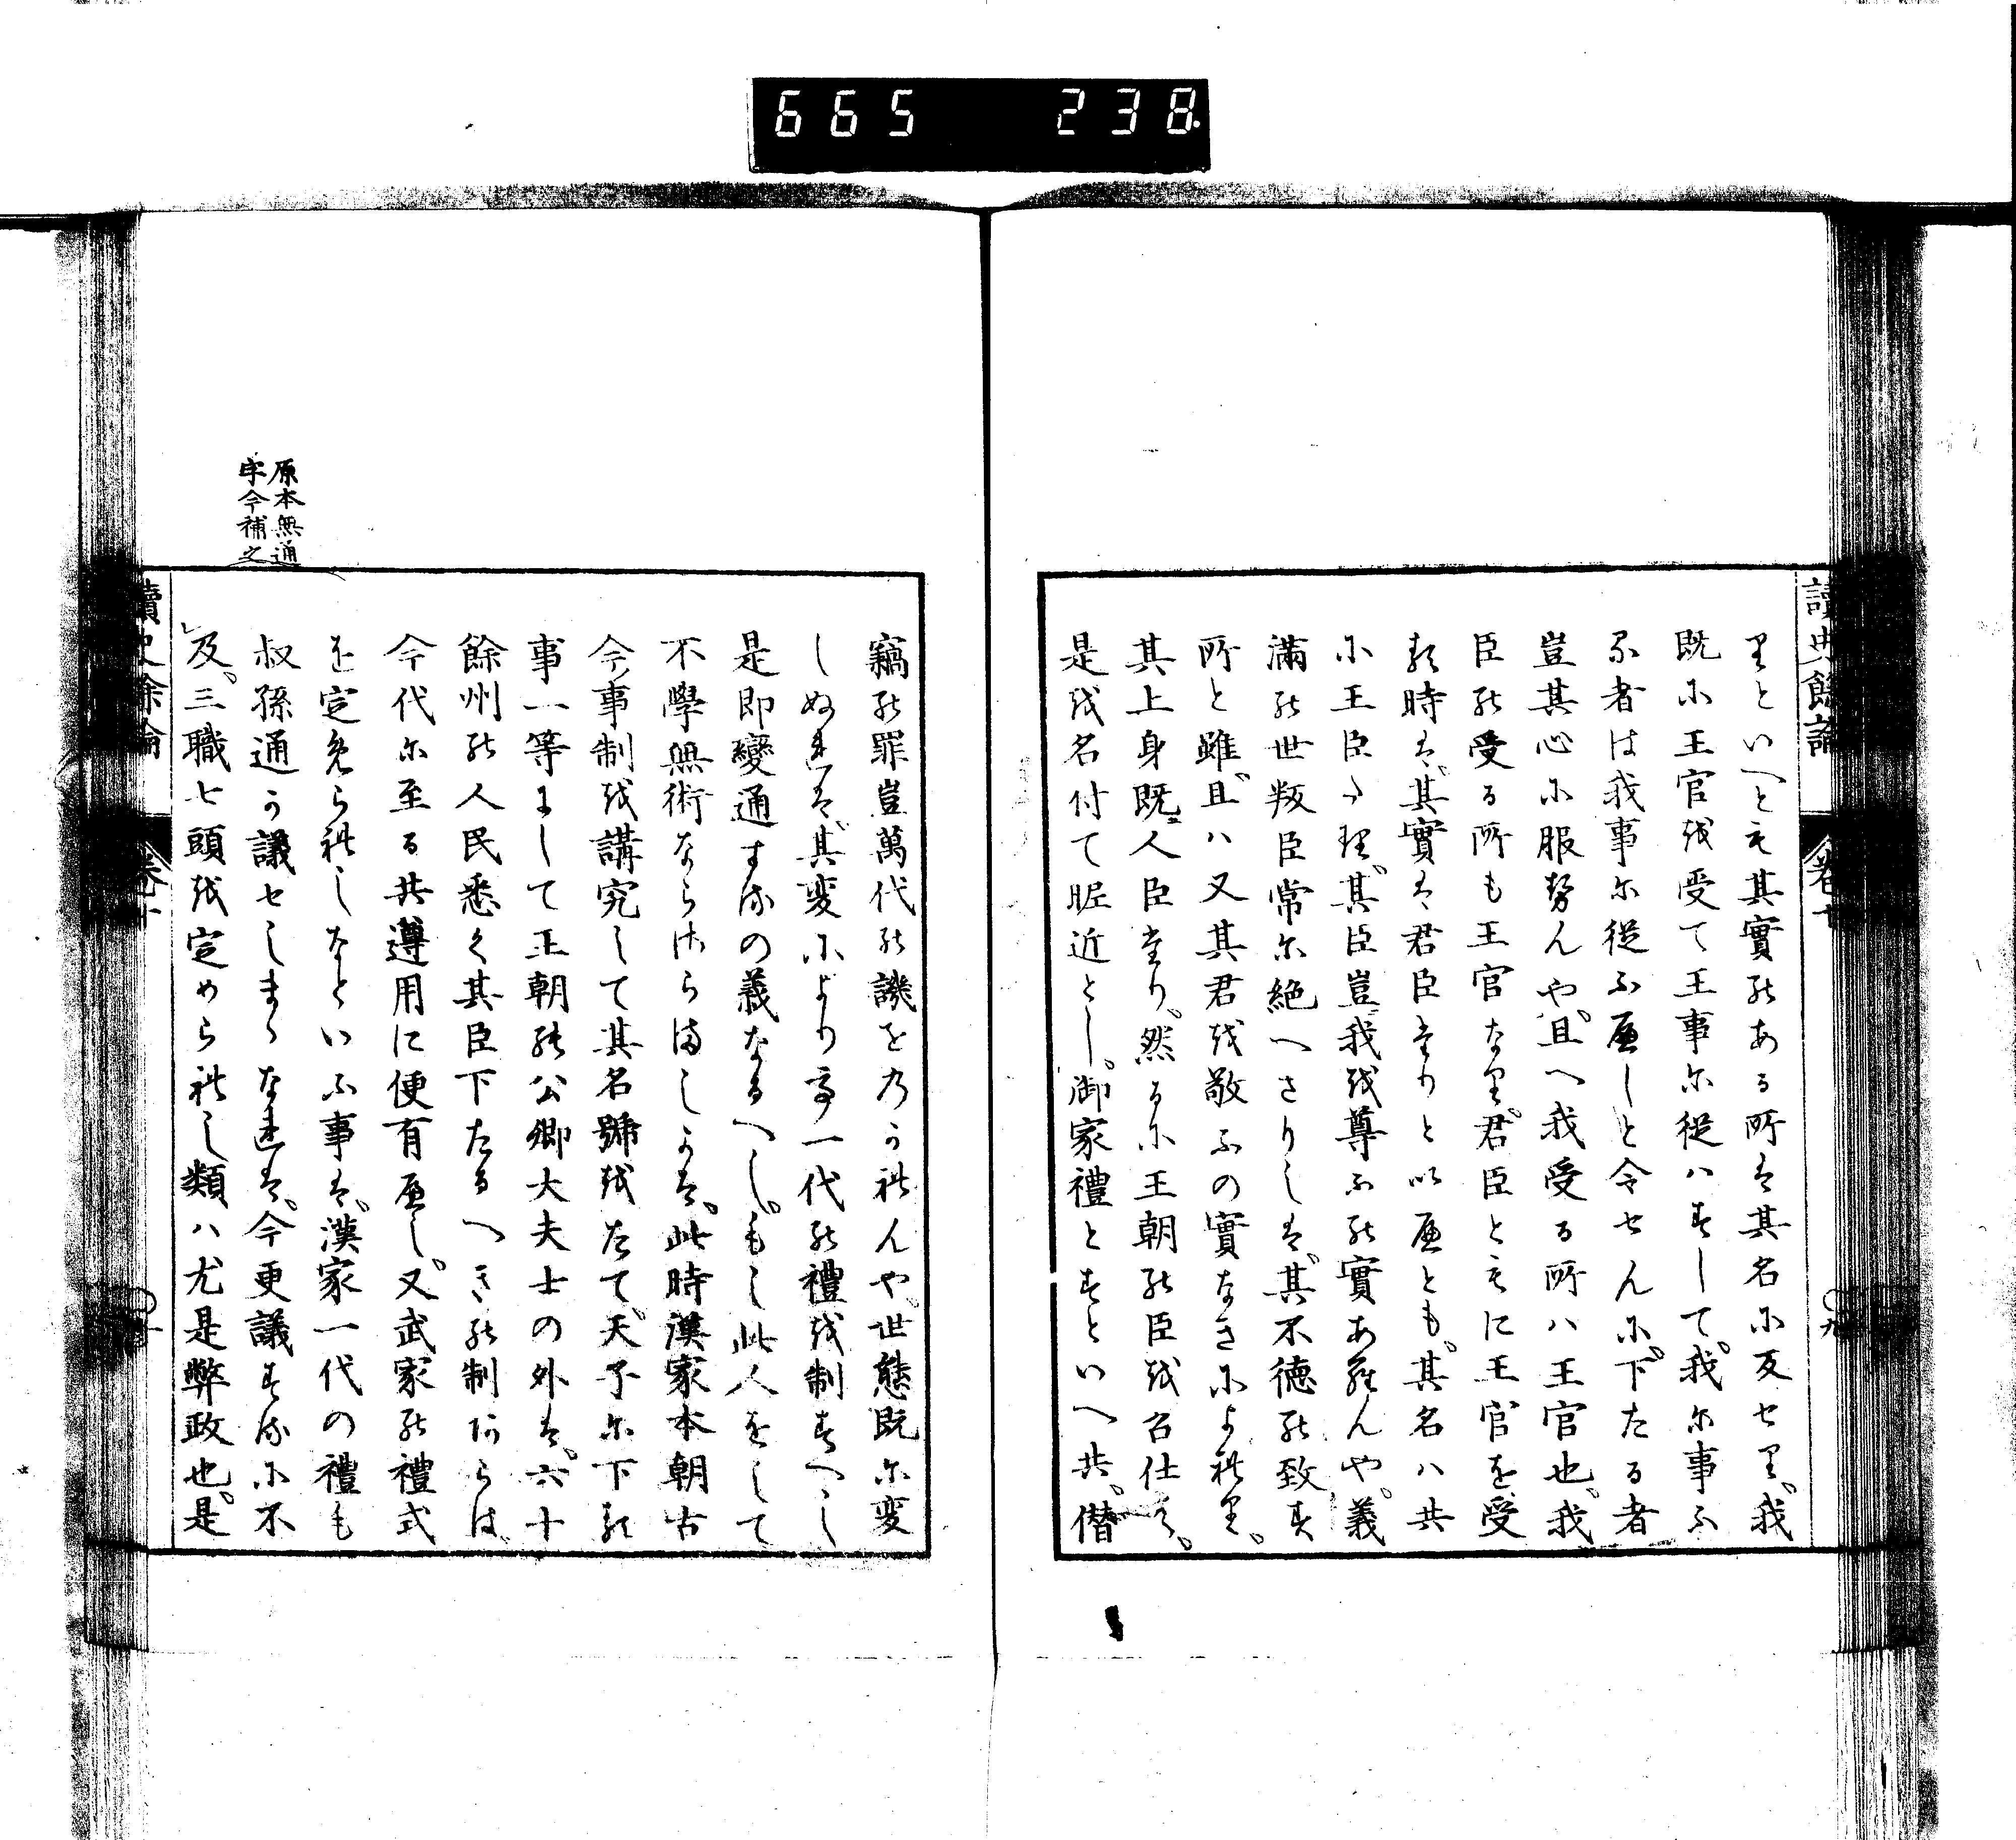 665 238
讀史餘論 卷十 九
りといへとも其實のある所は其名に反せり、我
既に王官を受て王事に従はすして、我に事ふ
る者は我事に従ふへしと令せんに、下たる者
豈其心に服せんや、且つ我受る所ハ王官也、我
臣の受る所も王官なり、君臣ともに王官を受
る時は其實は君臣たりと以へとも、其名ハ共
に王臣たり、其臣豈我を尊ふの實あらんや、義
滿の世叛臣常に絶へさりしは、其不徳の致す
所と雖、且ハ又其君を敬ふの實なきによれり、
其上身既人臣たり、然るに王朝の臣を召仕て、
是を名付て昵近とし、御家禮とすといへ共、僭
竊の罪豈萬代の譏をのかれんや世態既に変
しぬれは、其変により而一代の禮を制すへし
是即變通するの義なるへし、もし此人をして
不學無術ならさらましかは、此時漢家本朝古
今事制を講究して其名號をたて、天子に下る
事一等にして王朝の公卿大夫士の外は、六十
餘州の人民悉く其臣下たるへきの制あらは
今代に至る共遵用に便有へし、又武家の禮式
を定められしなといふ事は、漢家一代の禮も
叔孫通か議せしまゝなれは、今更議するに不
及、三職七頭を定められし類ハ尤是弊政也、是
原本無通
字今補之
讀史餘論 卷十